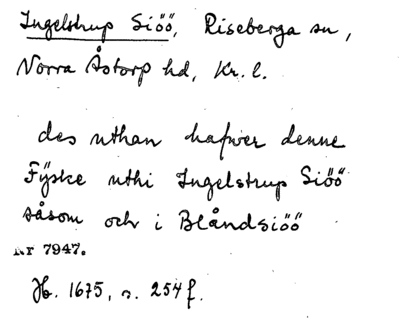 Ingelstrup Siöö, Riseberga sn,
Norra Åstorp hd, Kr. l.
des uthan hafwer denne
Fÿske uthi Ingelstrup Siöö
såsom och i Blåndsiöö
Nr 7947.
Jb. 1675, s. 254 f.